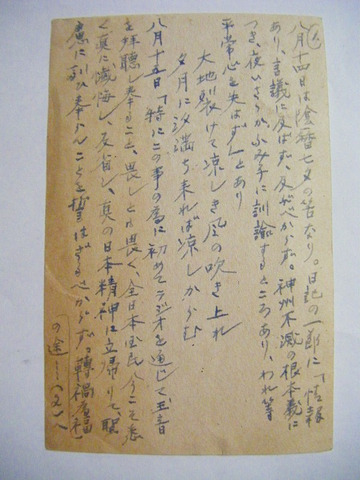 八月十四日は陰暦七夕の筈なり。日記の一節に「情報
あり、言議に及ばず、及ぶべからず。神州不滅の根本義に
つき、夜いさゝかふみ子に訓諭するところあり、われ等
平常心を失はず」とあり
大地裂けて涼しき風の吹き上れ
夕月に汐満ち来れば涼しからむ
八月十五日「特にこの事の為に初めてラジオを通じて玉音
を拝聴し奉ること、畏しとも畏く、全日本国民、今こそ悉
く真に懺悔し、反省し、真の日本精神に立帰りて、聖
慮に副ひ奉らんことを誓はざるべからず。転禍為福
の途――」(文)へ